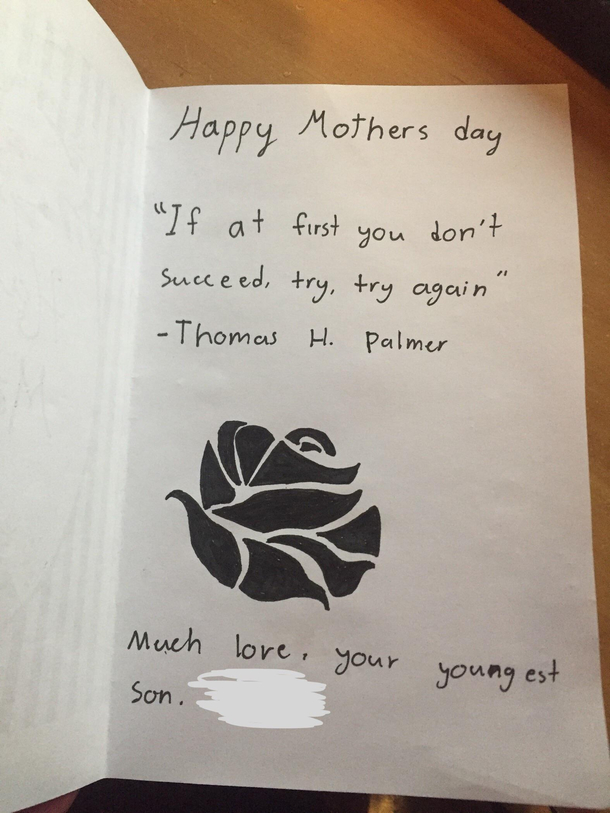 Happy Mothers day
"If at first you don't
succeed, try, try again"
-Thomas H. Palmer
Much love, your youngest
son.